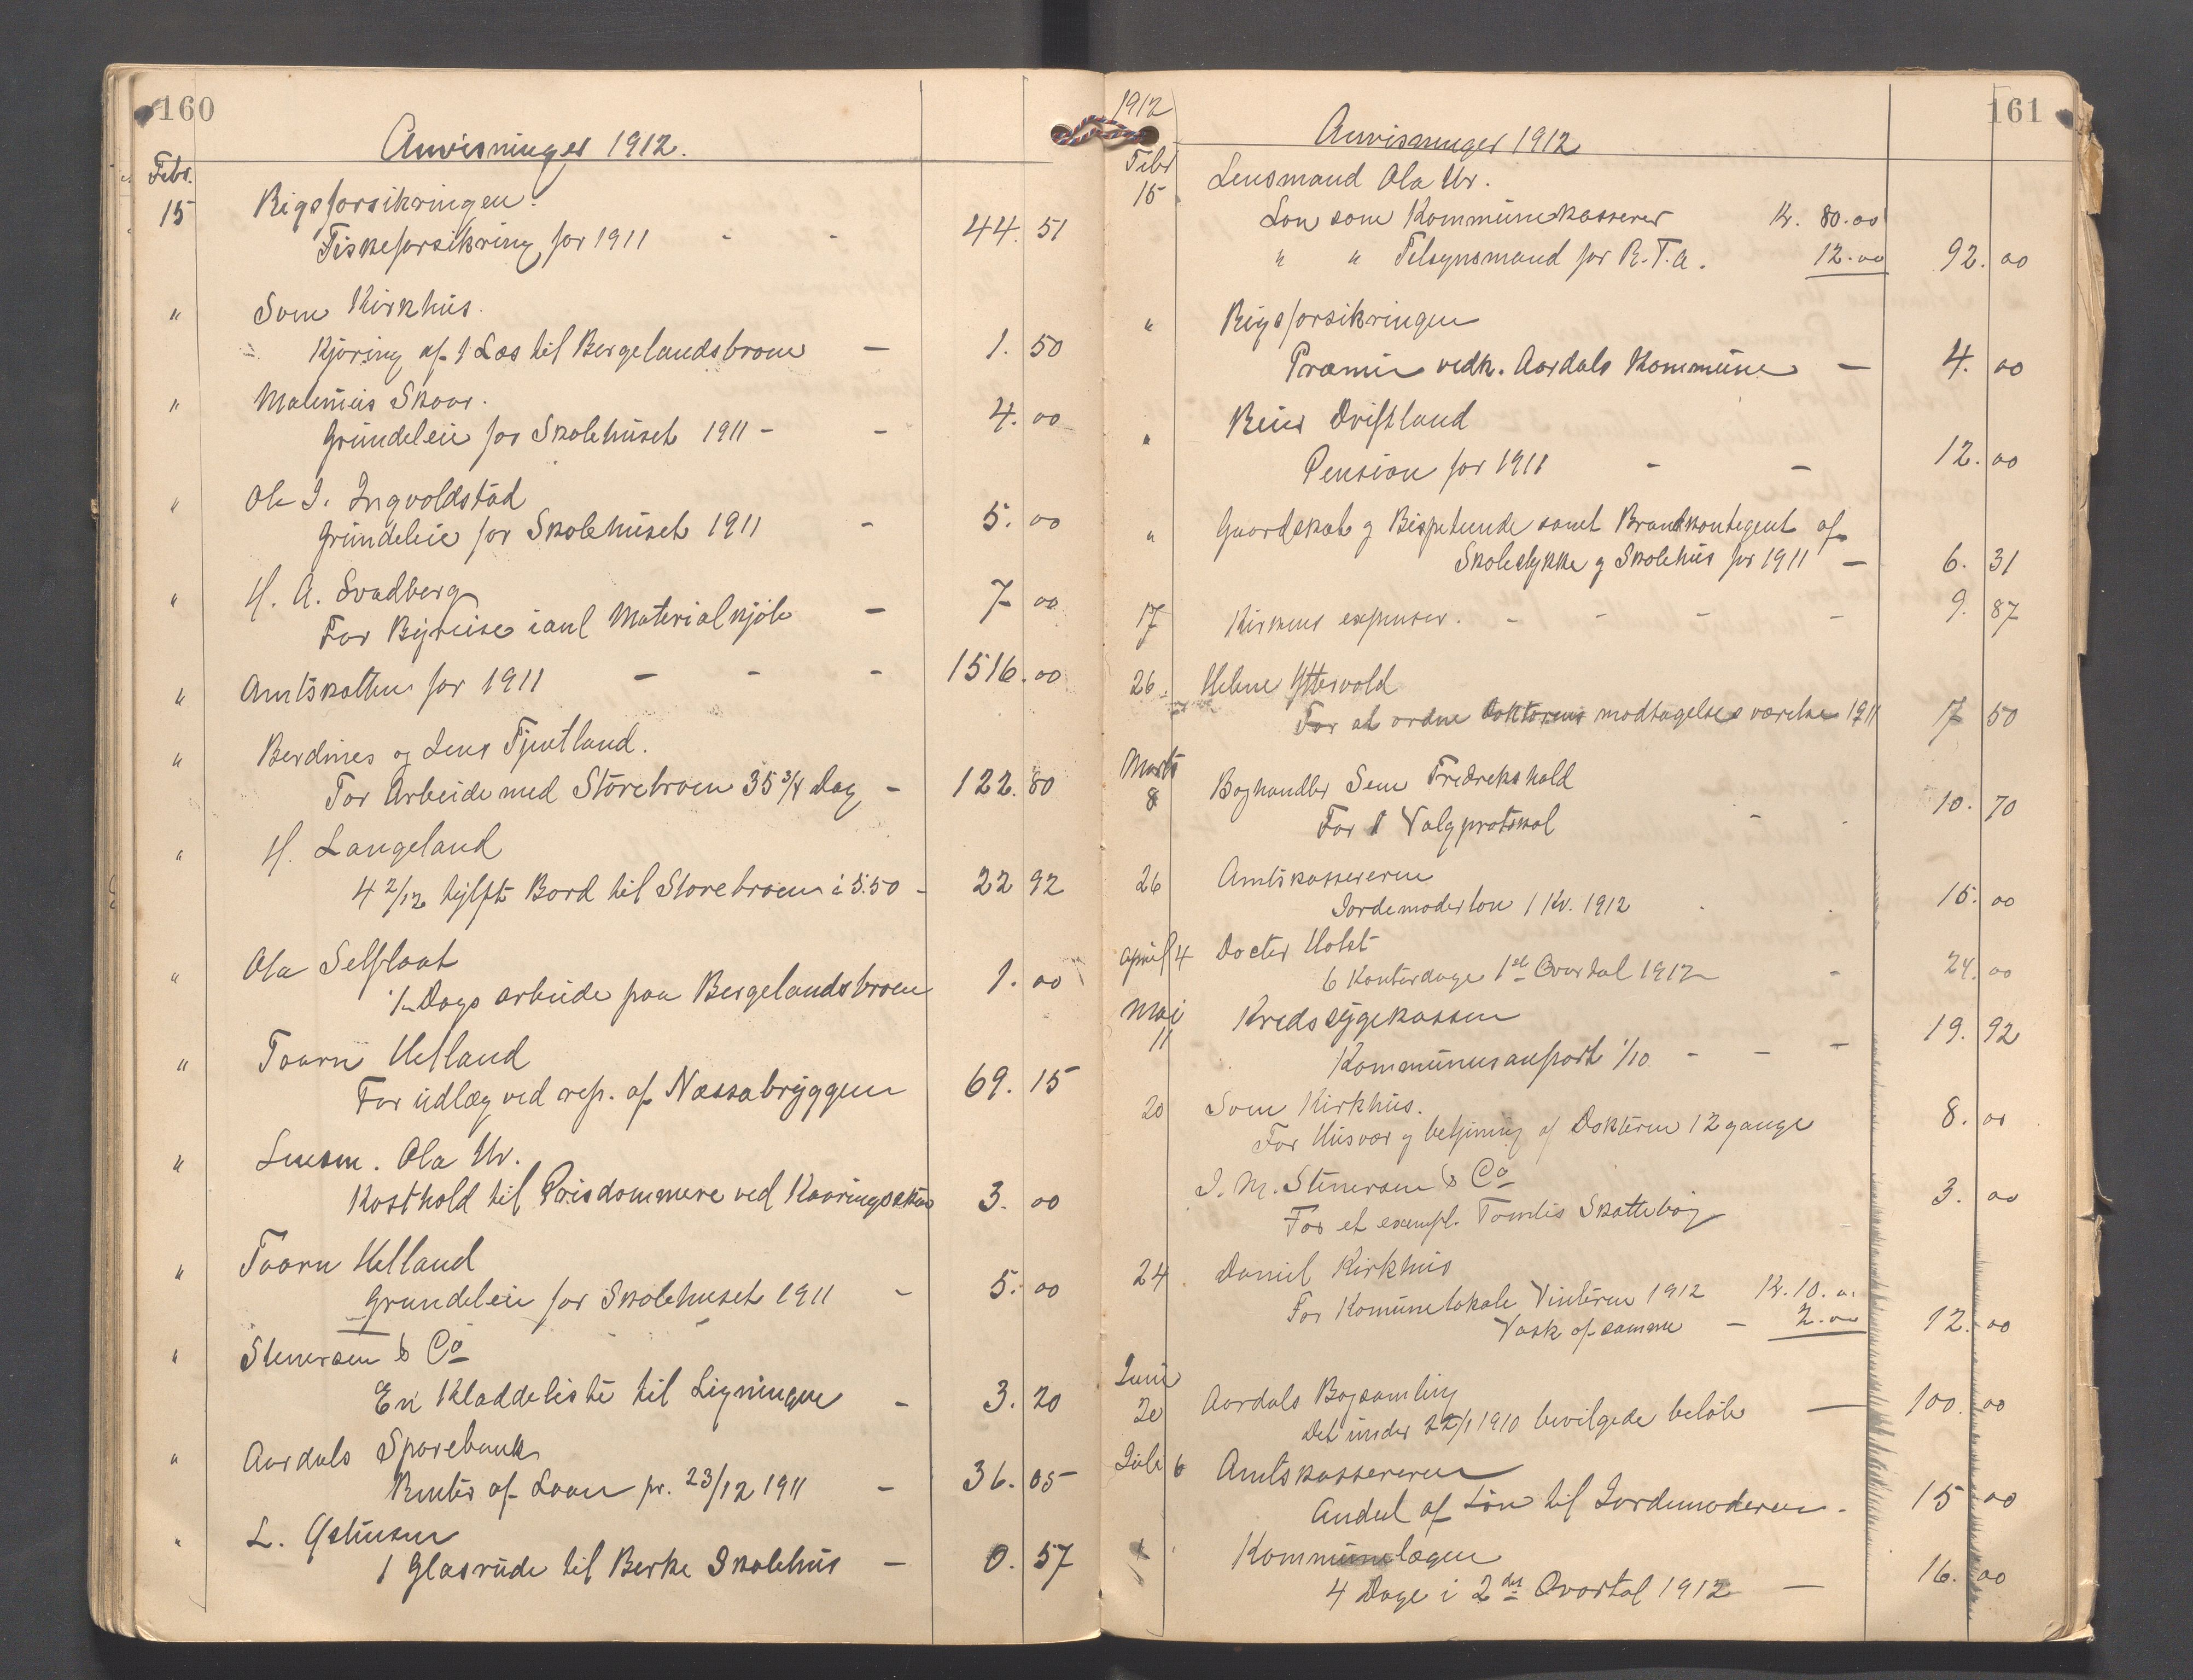 160
Anvisninger 1912.
Febr.
15 Rigsforsikringen.
Fiskeforsikring for 1911 - - 44. 51
" Svein Kirkhus.
Kjøring af 1 Læs til Bergelandsbroen - 1. 50
" Malenius Skaar.
Grundeleie for Skolehuset 1911 - - 4. 00
" Ole I. Ingvoldstad
Grundeleie for Skolehuset 1911 - 5. 00
" H. A. Svadberg
For Byreise ianl Materialkjøb - 7. 00
" Amtskatten for 1911 - - - 1516. 00
" Berdines og Jens Fjeutland.
For Arbeide med Storebroen 35 3/4 Dag - 122. 80
" H. Langeland
4 2/12 tylft Bord til Storebroen à 5.50 - 22 92
" Ola Selflaat
1/2 Dags arbeide paa Bergelandsbroen 1. 00
" Taarn Helland
For udlæg ved rep. af Næssabryggen 69. 15
" Lensm. Ola Ur.
Kosthold til Prisdommere ved Kaaringsskue 3. 00
" Taarn Helland
Grundeleie for Skolehuset 1911 - 5. 00
" Stenersen & Co
En Kladdeliste til Ligningen - 3. 20
" Aardals Sparebank
Renter af Laan pr. 23/12 1911 - 36. 05
" L. Østensen
1 Glasrude til Berke Skolehus - 0. 57
161
1912
Anvisninger 1912
Febr
15 Lensmand Ola Ur.
Løn som Kommunekasserer Kr. 80.00
" " Tilsynsmand for R.T.A. 12.00 92. 00
" Rigsforsikringen
Præmie vedk. Aardals Kommune - 4. 00
" Reier Driftland
Pension for 1911 - - 12. 00
" Gaardskat og Bispetiende samt Brandkontegent af
Skolestykke og Skolehus for 1911 - 6. 31
17 Kirkens expenser. - - - - 9. 87
26 Helene Yttervold
For at ordne Doktorens modtagelsesværelse 1911 17 50
Marts
8 Boghandler Sem Fredrekshald
For 1 Valgprotokol - 10. 70
26 Amtskassereren
Jordemoderløn 1 Kv. 1912 15. 00
April 4 Docter Holst
6 Kontordage 1ste Qvartal 1912 - 24. 00
Mai
11 Kredssygekassen
Kommunens anpart 1/10 - - - 19. 92
20 Svein Kirkhus.
For Husvær og betjening af Doktoren 12 gange 8. 00
J. M. Stenersen & Co
For et exempl. Tomtis Skattebog 3. 00
24 Daniel Kirkhus
For Komunelokale Vinteren 1912 Kr. 10. 00
Vask af samme - 2.00 12. 00
Juni
20 Aardals Bogsamling
Det under 22/1 1910 bevilgede beløb - 100. 00
Juli 6 Amtskassereren
Andel af Løn til Jordemoderen - 15 00
Kommunelægen
4 Dage i 2det Qvartal 1912 - 16. 00